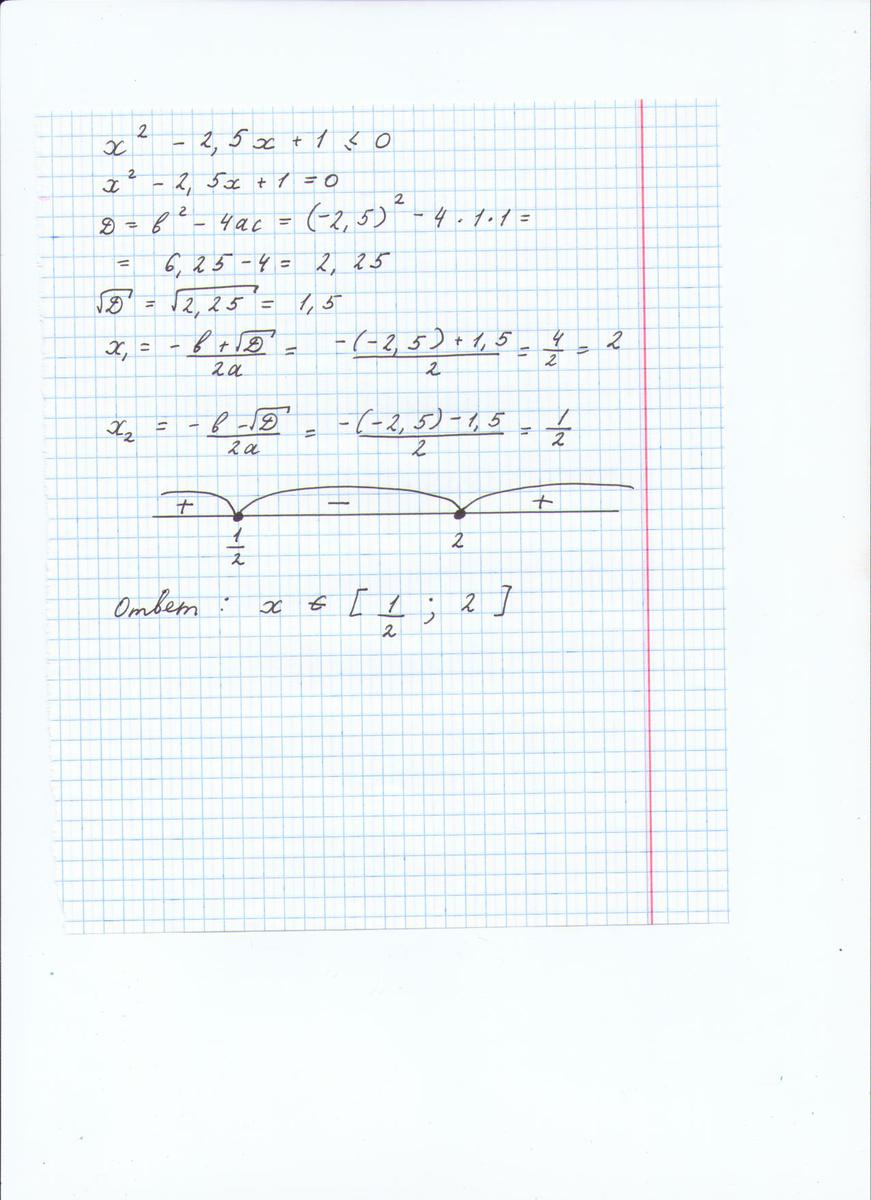 x² - 2,5x + 1 ≤ 0
x² - 2,5x + 1 = 0
D = b² - 4ac = (-2,5)² - 4 · 1 · 1 =
= 6,25 - 4 = 2,25
√D = √2,25 = 1,5
x₁ = -b + √D / 2a = -(-2,5) + 1,5 / 2 = 4/2 = 2
x₂ = -b - √D / 2a = -(-2,5) - 1,5 / 2 = 1/2
+ - +
1/2 2
Ответ : x ∈ [ 1/2 ; 2 ]